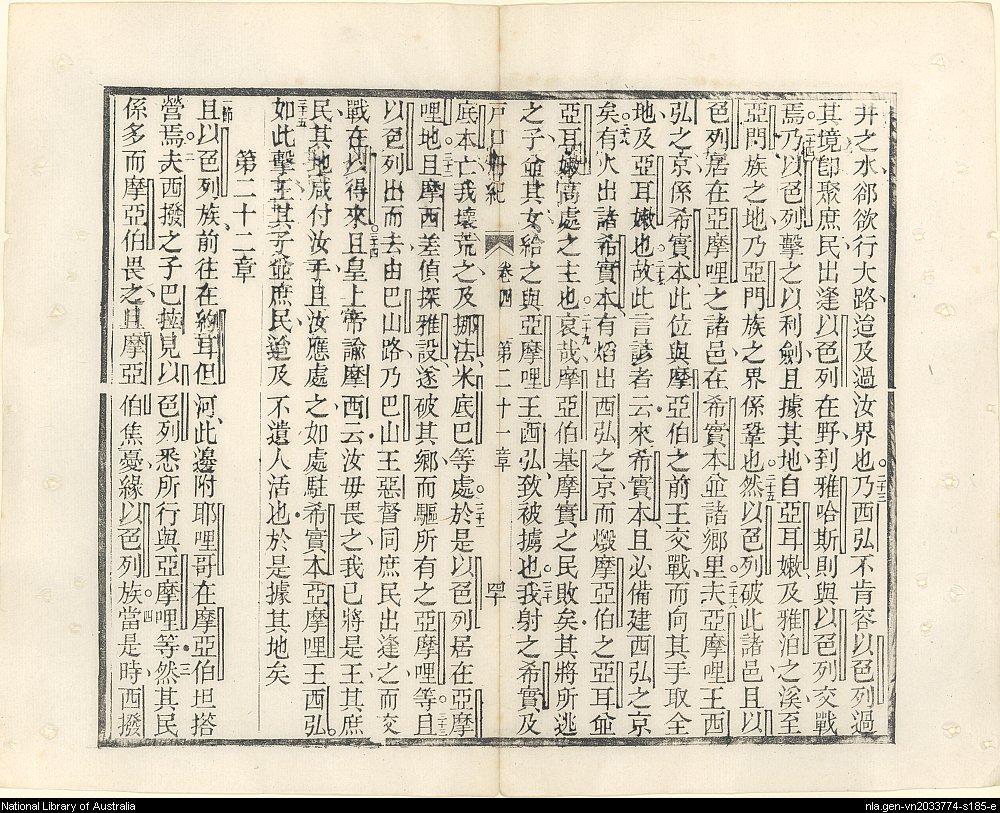 井之水郤欲行大路迨及過汝界也。二十三乃西弘不肯容以色列過
其境卽聚庶民出逢以色列在野到雅哈斯則與以色列交戰
焉。二十四乃以色列擊之以利劍且據其地自亞耳嫩及雅泊之溪至
亞門族之地乃亞門族之界係鞏也。二十五然以色列破此諸邑且以
色列居在亞摩哩之諸邑在希實本並諸鄉里。二十六夫亞摩哩王西
弘之京係希實本此位與摩亞伯之前王交戰而向其手取全
地及亞耳嫩也。二十七故此言諺者云來希實本且必備建西弘之京
矣。二十八有火出諸希實本有焰出西弘之京而燬摩亞伯之亞耳並
亞耳嫩高處之主也。二十九哀哉摩亞伯基摩實之民敗矣其將所逃
之子並其女給之與亞摩哩王西弘致被擄也。三十我射之希實及
戶口冊紀 卷四 第二十一章
底本亡我壞荒之及挪法米底巴等處。三十一於是以色列居在亞摩
哩地。三十二且摩西差偵探雅設遂破其鄉而驅所有之亞摩哩等。三十三且
以色列出而去由巴山路乃巴山王惡督同庶民出逢之而交
戰在以得來。三十四且皇上帝諭摩西云汝毋畏之我已將是王其庶
民其地咸付汝手且汝應處之如處駐希實本亞摩哩王西弘。
三十五如此擊王其子並庶民迨及不遺人活也於是據其地矣
第二十二章
一節且以色列族前往在約耳但河此邊附耶哩哥在摩亞伯坦搭
營焉。二夫西撥之子巴拉見以色列悉所行與亞摩哩等。三然其民
係多而摩亞伯畏之且摩亞伯焦憂緣以色列族。四當是時西撥
National Library of Australia
nla.gen-vn2033774-s185-e